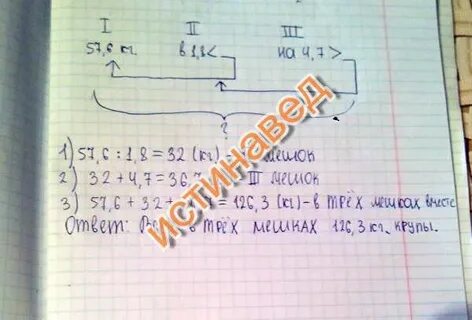 I II III
57,6 кг в 1,8< на 4,7>
?
1) 57,6 : 1,8 = 32 (кг) – мешок
2) 32 + 4,7 = 36,7 III мешок
3) 57,6 + 32 + = 126,3 (кг) – в трёх мешках вместе
Ответ: в трёх мешках 126,3 кг. крупы.
истинавед